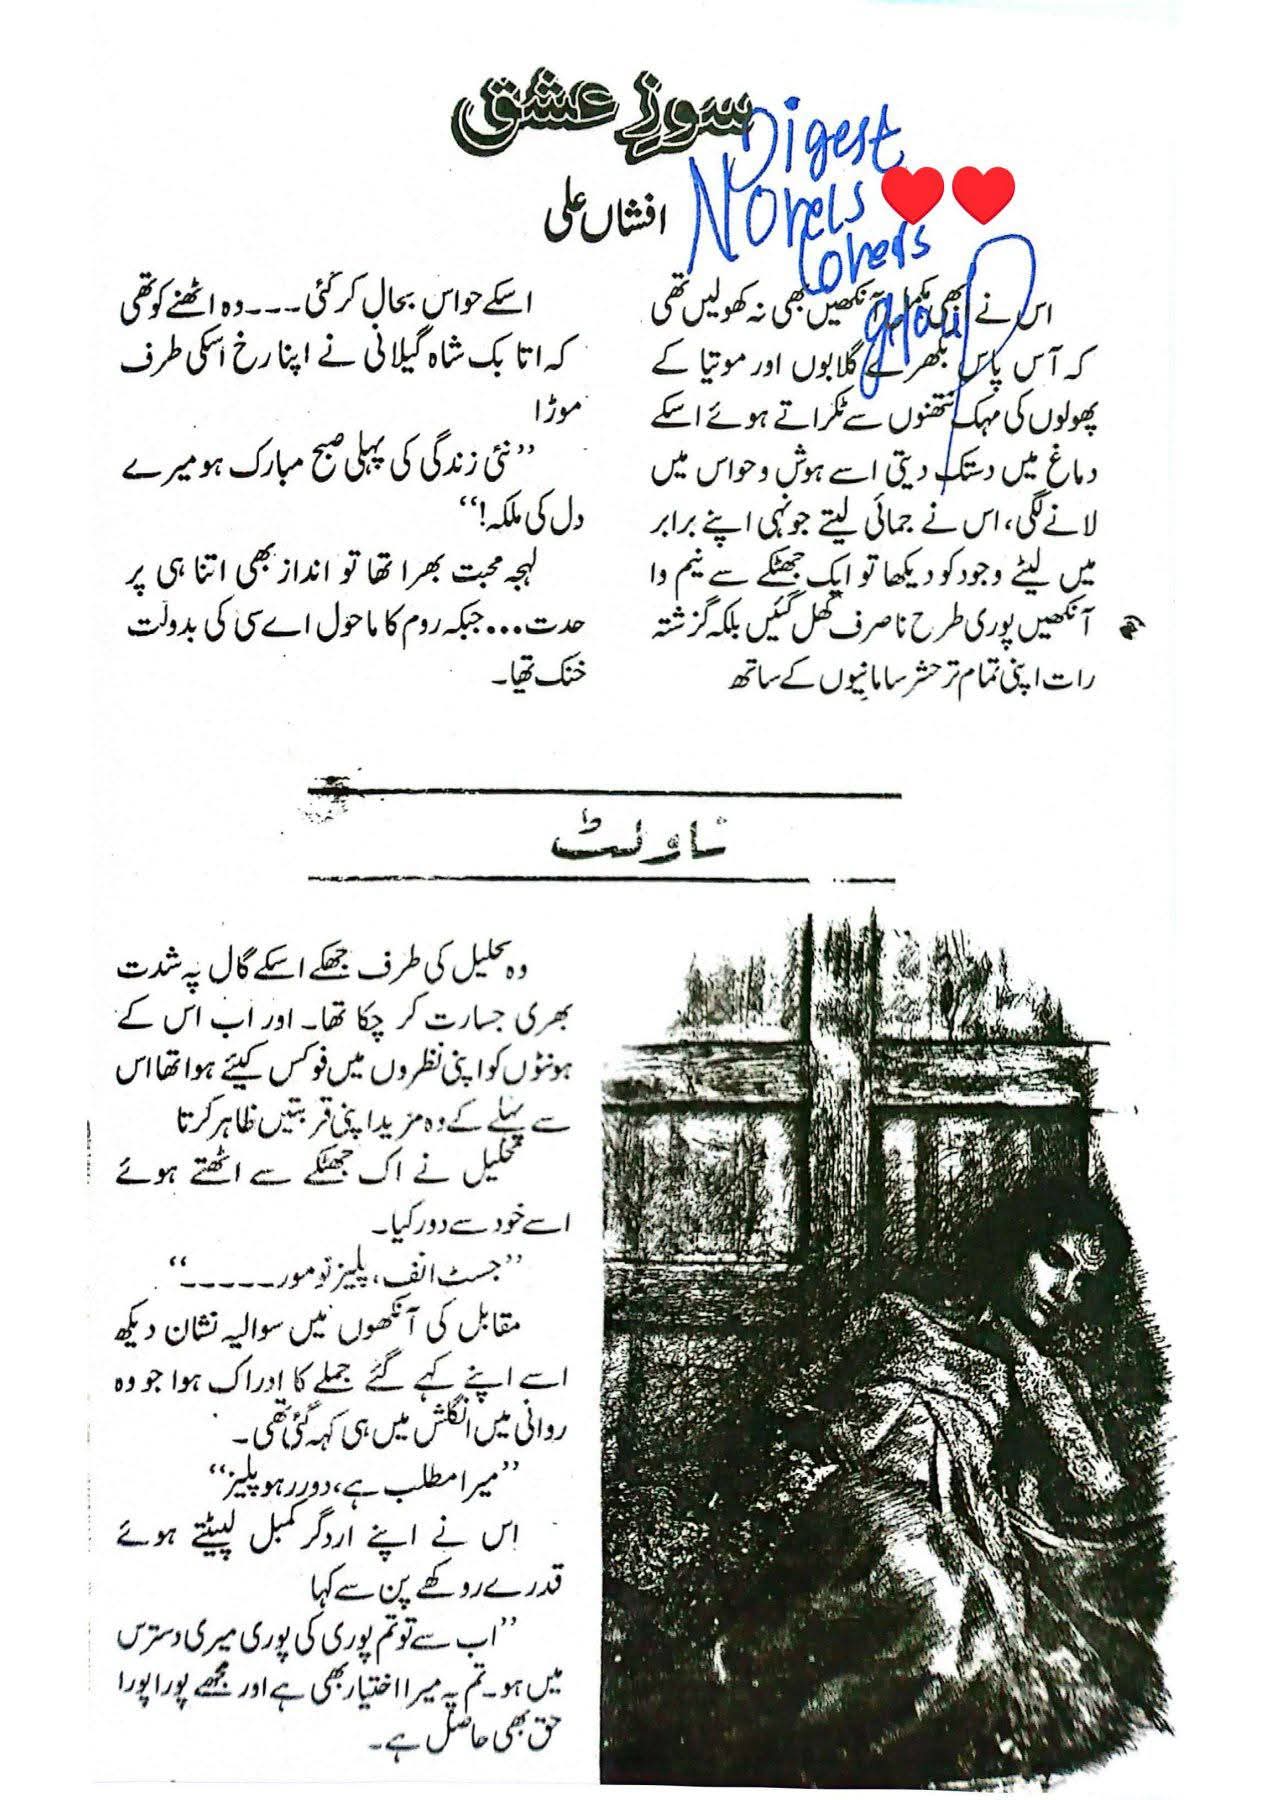 سوزِ عشق
افشاں علی
Digest
Novels
Lovers
group
اس نے ابھی مکمل آنکھیں بھی نہ کھولیں تھی
کہ آس پاس بکھرے گلابوں اور موتیا کے
پھولوں کی مہک نتھنوں سے ٹکراتے ہوئے اسکے
دماغ میں دستک دیتی اسے ہوش و حواس میں
لانے لگی، اس نے جمائی لیتے جونہی اپنے برابر
میں لیٹے وجود کو دیکھا تو ایک جھٹکے سے نیم وا
آنکھیں پوری طرح ناصرف کھل گئیں بلکہ گزشتہ
رات اپنی تمام تر حشر سامانیوں کے ساتھ
اسکے حواس بحال کر گئی ۔۔۔ وہ اٹھنے کو تھی
کہ اتابک شاہ گیلانی نے اپنا رخ اسکی طرف
موڑا
”نئی زندگی کی پہلی صبح مبارک ہو میرے
دل کی ملکہ!“
لہجہ محبت بھرا تھا تو انداز بھی اتنا ہی پر
حدت... جبکہ روم کا ماحول اے سی کی بدولت
خنک تھا۔
ناولٹ
وہ تحلیل کی طرف جھکے اسکے گال پہ شدت
بھری جسارت کر چکا تھا۔ اور اب اس کے
ہونٹوں کو اپنی نظروں میں فوکس کیئے ہوا تھا اس
سے پہلے کے وہ مزید اپنی قربتیں ظاہر کرتا
تحلیل نے اک جھٹکے سے اٹھتے ہوئے
اسے خود سے دور کیا۔
”جسٹ انف، پلیز نو مور ۔۔۔۔۔“
مقابل کی آنکھوں میں سوالیہ نشان دیکھ
اسے اپنے کہے گئے جملے کا ادراک ہوا جو وہ
روانی میں انگلش میں ہی کہہ گئی تھی۔
”میرا مطلب ہے، دور رہو پلیز“
اس نے اپنے اردگر کمبل لپیٹتے ہوئے
قدرے روکھے پن سے کہا
”اب سے تو تم پوری کی پوری میری دسترس
میں ہو۔ تم پہ میرا اختیار بھی ہے اور مجھے پورا پورا
حق بھی حاصل ہے۔